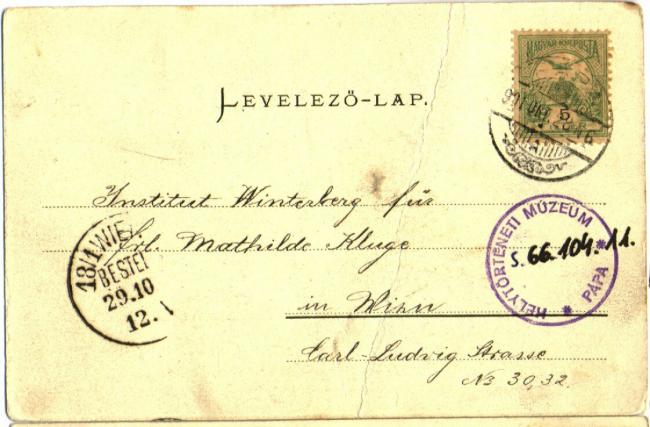 MAGYAR KIR. POSTA
5
LEVELEZŐ-LAP.
Institut Winterberg für
Frl. Mathilde Kluge
in Wien
Carl-Ludwig Strasse
No 30,32.
HELYTÖRTÉNETI MÚZEUM * PÁPA *
S. 66.104.11.
18/1 WIEN
BESTEL
29.10
12.